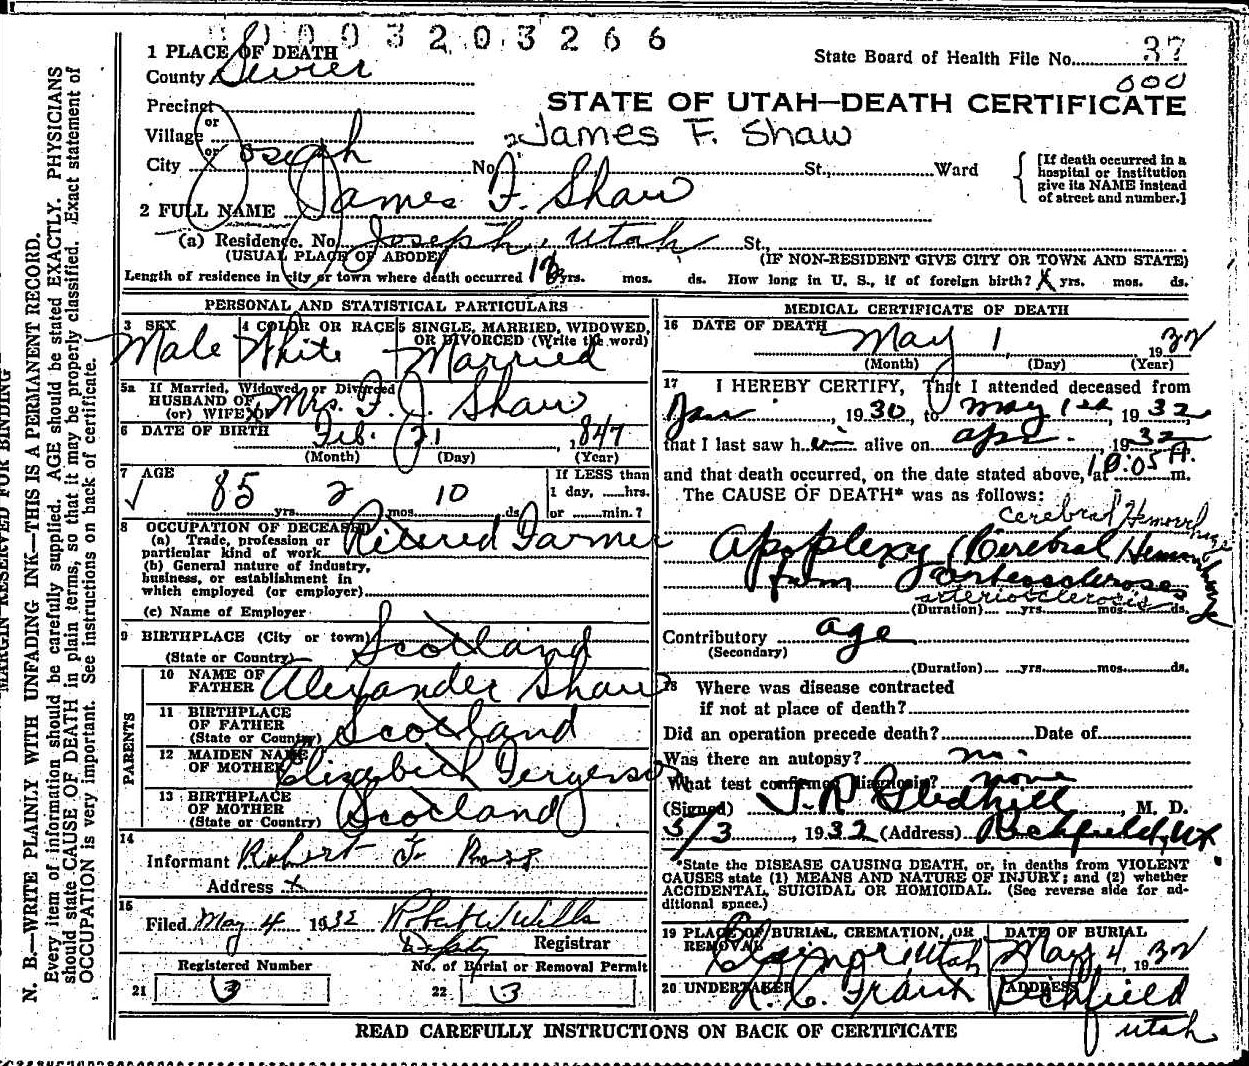 003203266
1 PLACE OF DEATH
State Board of Health File No. 37
County Sevier
000
STATE OF UTAH—DEATH CERTIFICATE
Precinct
or
Village
James F. Shaw
or
City Joseph No. St., Ward
[If death occurred in a
hospital or institution
give its NAME instead
of street and number.]
2 FULL NAME James F. Shaw
(a) Residence. No. Joseph, Utah St.,
(USUAL PLACE OF ABODE) (IF NON-RESIDENT GIVE CITY OR TOWN AND STATE)
Length of residence in city or town where death occurred yrs. mos. ds. How long in U. S., if of foreign birth? X yrs. mos. ds.
PERSONAL AND STATISTICAL PARTICULARS
3 SEX
Male
4 COLOR OR RACE
White
5 SINGLE, MARRIED, WIDOWED,
OR DIVORCED (Write the word)
Married
5a If Married, Widowed or Divorced
HUSBAND OF
(or) WIFE OF Mrs. F. J. Shaw
6 DATE OF BIRTH Feb. 21 1847
(Month) (Day) (Year)
7 AGE
85 yrs. 2 mos. 10 ds.
If LESS than
1 day, ......hrs.
or ......min.?
8 OCCUPATION OF DECEASED
(a) Trade, profession or
particular kind of work Retired Farmer
(b) General nature of industry,
business, or establishment in
which employed (or employer)
(c) Name of Employer
9 BIRTHPLACE (City or town)
(State or Country) Scotland
PARENTS
10 NAME OF
FATHER Alexander Shaw
11 BIRTHPLACE
OF FATHER
(State or Country) Scotland
12 MAIDEN NAME
OF MOTHER Elizabeth Ferguson
13 BIRTHPLACE
OF MOTHER
(State or Country) Scotland
14
Informant Robert F. Ross
Address x
15
Filed May 4 1932 Robert W Wells
Deputy Registrar
Registered Number
21 3
No. of Burial or Removal Permit
22 3
MEDICAL CERTIFICATE OF DEATH
16 DATE OF DEATH
May 1, 1932
(Month) (Day) (Year)
17 I HEREBY CERTIFY, That I attended deceased from
Jan 1930, to May 1st, 1932,
that I last saw him alive on apr. 1932
and that death occurred, on the date stated above, at 10:05 A. m.
The CAUSE OF DEATH* was as follows:
Cerebral Hemorrhage
Apoplexy (Cerebral Hemorrhage
from arteosclerosis
arteriosclerosis
(Duration) yrs. mos. ds.
Contributory age
(Secondary)
(Duration) yrs. mos. ds.
18 Where was disease contracted
if not at place of death?
Did an operation precede death? Date of
Was there an autopsy? no.
What test confirmed diagnosis? none
(Signed) J. R. Gledhill, M. D.
5/3, 1932 (Address) Richfield, Ut.
*State the DISEASE CAUSING DEATH, or, in deaths from VIOLENT
CAUSES state (1) MEANS AND NATURE OF INJURY; and (2) whether
ACCIDENTAL, SUICIDAL OR HOMICIDAL. (See reverse side for ad-
ditional space.)
19 PLACE OF BURIAL, CREMATION, OR
REMOVAL
Elsinore, Utah
DATE OF BURIAL
May 4, 1932
20 UNDERTAKER
ADDRESS
Richfield
Utah
READ CAREFULLY INSTRUCTIONS ON BACK OF CERTIFICATE
MARGIN RESERVED FOR BINDING
N. B.—WRITE PLAINLY WITH UNFADING INK—THIS IS A PERMANENT RECORD.
Every item of information should be carefully supplied. AGE should be stated EXACTLY. PHYSICIANS
should state CAUSE OF DEATH in plain terms, so that it may be properly classified. Exact statement of
OCCUPATION is very important. See instructions on back of certificate.